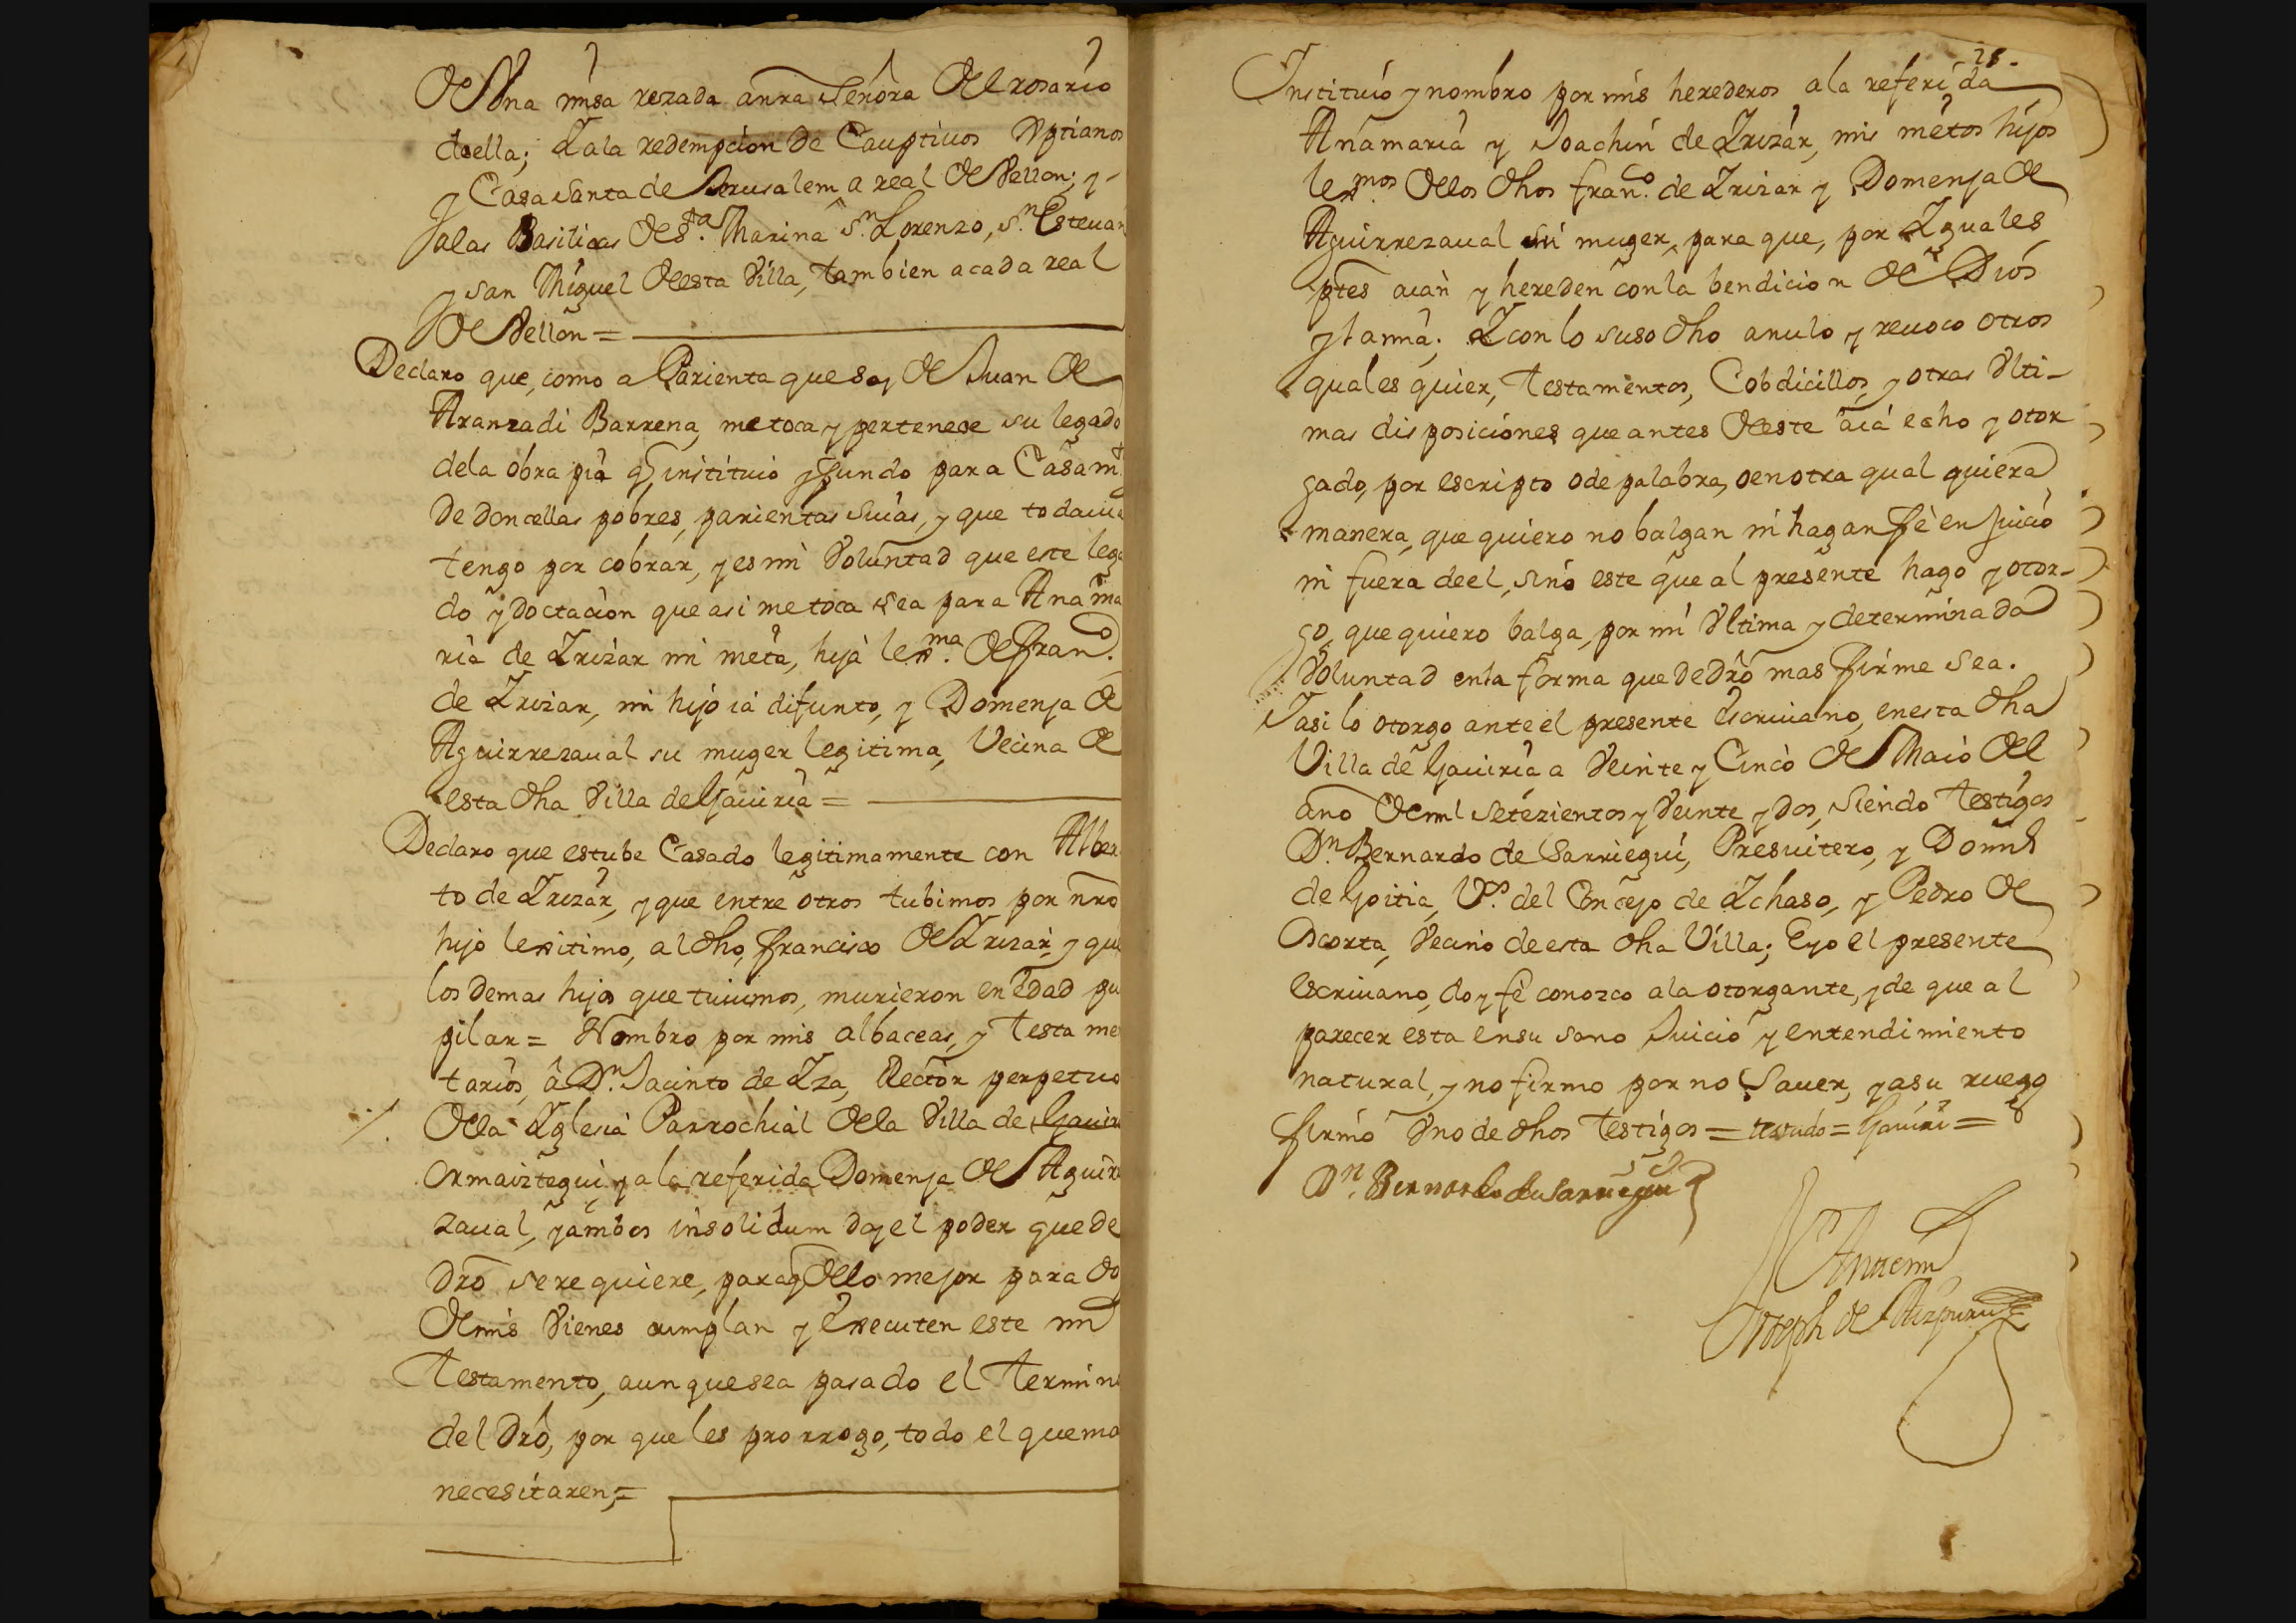 de Una misa rezada a nra Señora del rosario
de ella; Y ala redempcion de Cauptiuos Xptianos
y Casa santa de Jerusalem a real de Vellon; y
alas Basilicas de Sta. Marina Sn. Lorenzo, Sn. Esteuan
y san Miguel de esta Villa, tambien a cada real
de Vellon =
Declaro que, como a Parienta que soy de Juan de
Aranzadi Barrena, me toca y pertenece su legado
dela obra pia q instituio y fundo para Casamto
de doncellas pobres, parientas suias, y que todauia
tengo por cobrar, y es mi Voluntad que este lega
do y doctacion que asi me toca sea para Ana ma
ria de Yrizar mi nieta, hija lexma. de Franco.
de Yrizar, mi hijo ia difunto, y Domenja de
Aguirrezaual su muger legitima, Vecina de
esta dha Villa de Gauiria =
Declaro que estube Casado legitimamente con Alber
to de Yrizar, y que entre otros tubimos por nro
hijo lexitimo, al dho, francisco de Yrizar, y que
los demas hijos que tuuimos, murieron en edad pu
pilar = Nombro por mis albaceas, y testamen
tarios, â Dn. Jacinto de Yza, Rector perpetuo
dela Yglesia Parrochial dela Villa de Gauiri
Ormaiztegui, y a la referida Domenja de Aguirre
zaual, y âmbos insolidum doy el poder que de
dro se requiere, para q de lo mejor para do
de mis Vienes cumplan y Executen este mi
Testamento, aunque sea pasado el Termino
del dro, por que les prorrogo, todo el que mas
necesitaren; =
28.
Instituio y nombro por mis herederos ala referida
Ana maria y Joachin de Yrizar, mis nietos hijos
lexmos. de los dhos franco. de Yrizar y Domenja de
Aguirrezaual su muger, para que, por Yguales
ptes aian y hereden con la bendicion de Dios
y la mia; Y con lo suso dho anulo y reuoco otros
quales quier, Testamentos, Cobdicillos, y otras Ulti-
mas disposiciones que antes de este aia echo y otor
gado, por escripto o de palabra, o en otra qual quiera
manera, que quiero no balgan ni hagan fè en Juicio
ni fuera de el, sino este que al presente hago y otor-
go, que quiero balga, por mi Ultima y determinada
Voluntad en la forma que de dro mas firme sea.
Y asi lo otorgo ante el presente escriuano, en esta dha
Villa de Gauiria a Veinte y Cinco de Maio del
año de mil setezientos y Veinte y dos, siendo Testigos
Dn. Bernardo de Sarriegui, Presuitero, y Domi
de Goitia, Vo. del Concejo de Ychaso, y Pedro de
Dcorta, Vecino de esta dha Villa; E yo el presente
escriuano, doy fè conozco ala otorgante, y de que al
parecer esta en su sano Juicio y entendimiento
natural, y no firmo por no Sauer, y a su ruego
firmó Uno de dhos Testigos = testado = Gauiri =
Dn. Bernardo de Sarriegui
Ante mi
Joseph de Aizpuru